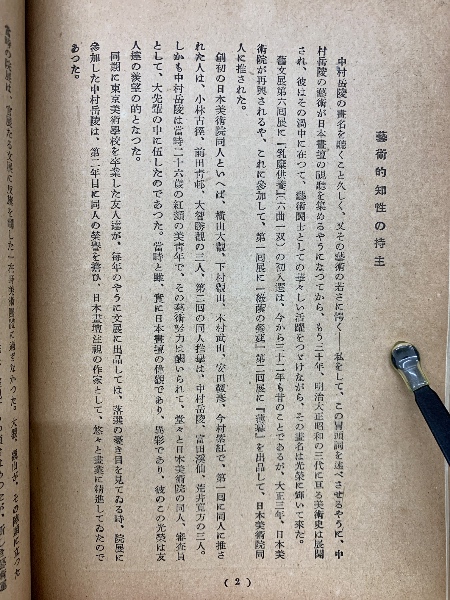 藝術的知性の持主
中村岳陵の畫名を聽くこと久しく、又その藝術の若さに驚く――私をして、この冒頭詞を述べさせるやうに、中
村岳陵の藝術が日本畫壇の視聽を集めるやうになつてから、もう三十年、明治大正昭和の三代に亙る美術史は展開
され、彼はその渦中に在つて、藝術鬪士としての華々しい活躍をつゞけながら、その畫名は光榮に輝いて來た。
舊文展第六回展に『乳糜供養』(六曲一双)の初入選は、今から三十二年も昔のことであるが、大正三年、日本美
術院が再興されるや、これに參加して、第一回展に『緑蔭の饗莚』第二回展に『薄暮』を出品して、日本美術院同
人に推された。
創初の日本美術院同人といへば、横山大觀、下村觀山、木村武山、安田靫彦、今村紫紅で、第一回に同人に推さ
れた人は、小林古徑、前田靑邨、大智勝觀の三人、第二回の同人推擧は、中村岳陵、富田溪仙、荒井寛方の三人。
しかも中村岳陵は當時二十六歳の紅顔の美靑年で、その藝術努力に酬いられて、堂々と日本美術院の同人、審査員
として、大先輩の中に伍したのであつた。當時と雖、實に日本畫壇の偉觀であり、異彩であり、彼のこの光榮は友
人達の羨望の的となつた。
同期に東京美術學校を卒業した友人達が、毎年のやうに文展に出品しては、落選の憂き目を見てゐる時、院展に
參加した中村岳陵は、第二年目に同人の榮譽を擔ひ、日本畫壇注視の作家として、悠々と畫業に精進してゐたので
あつた。
( 2 )